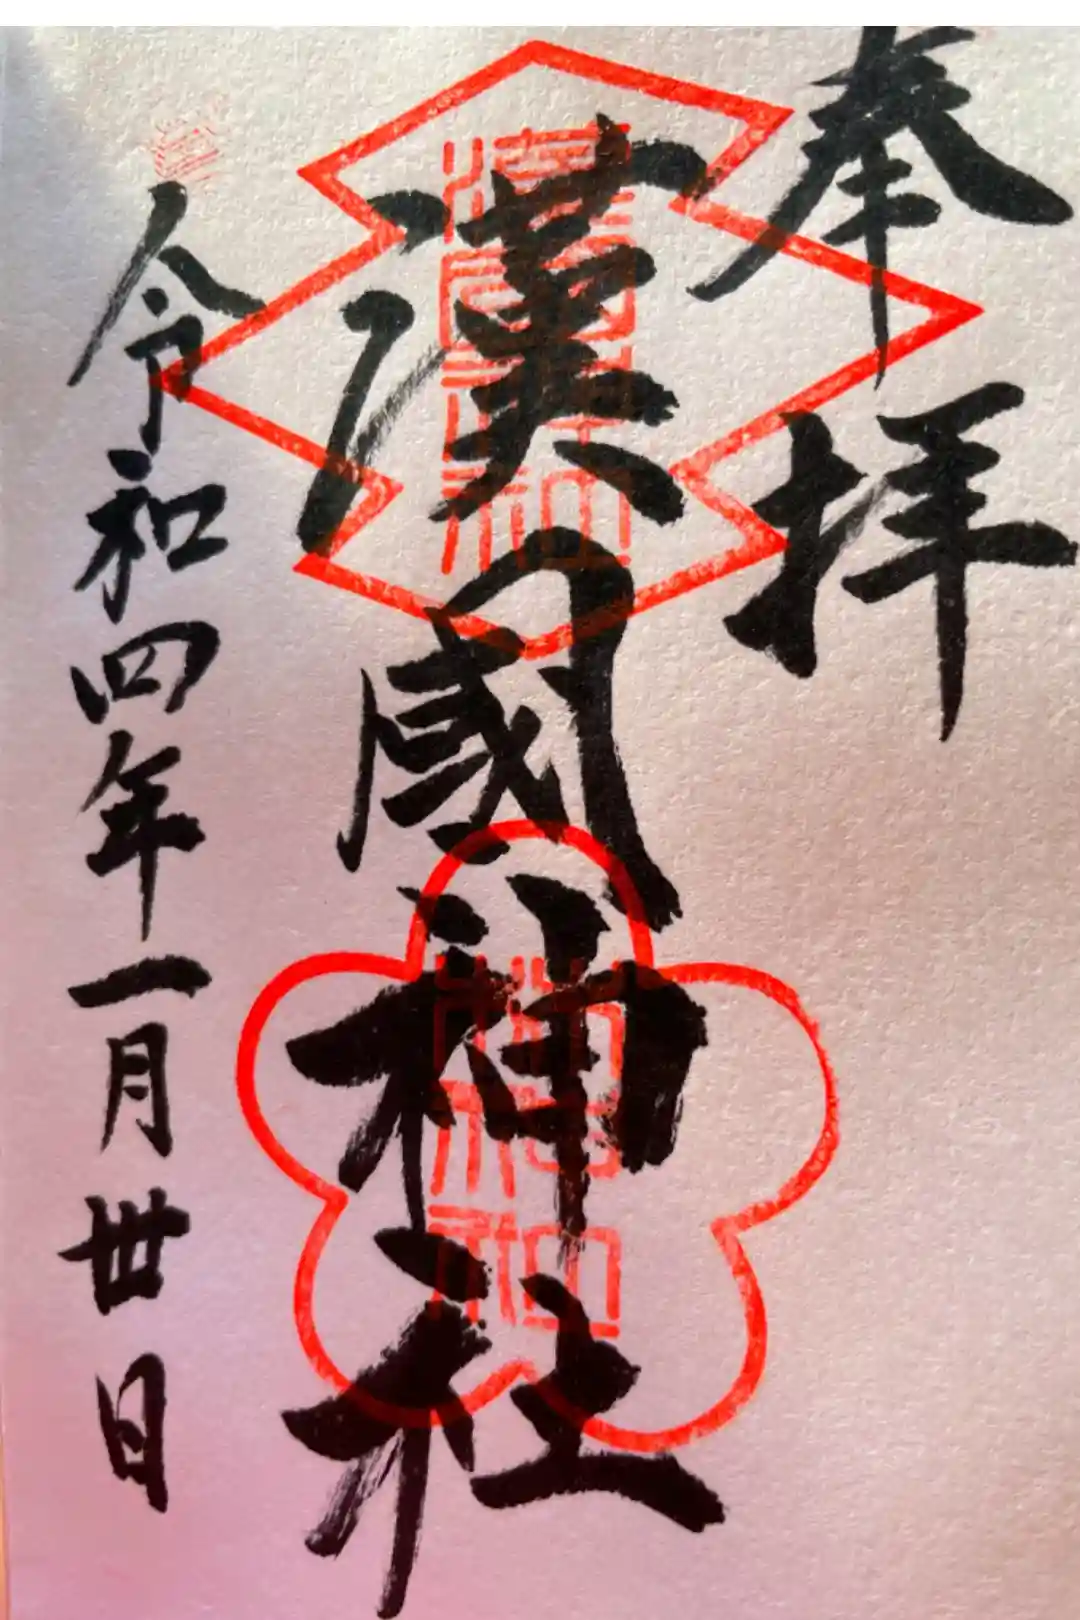 奉拝
漢國神社
漢國神社
令和四年一月丗日